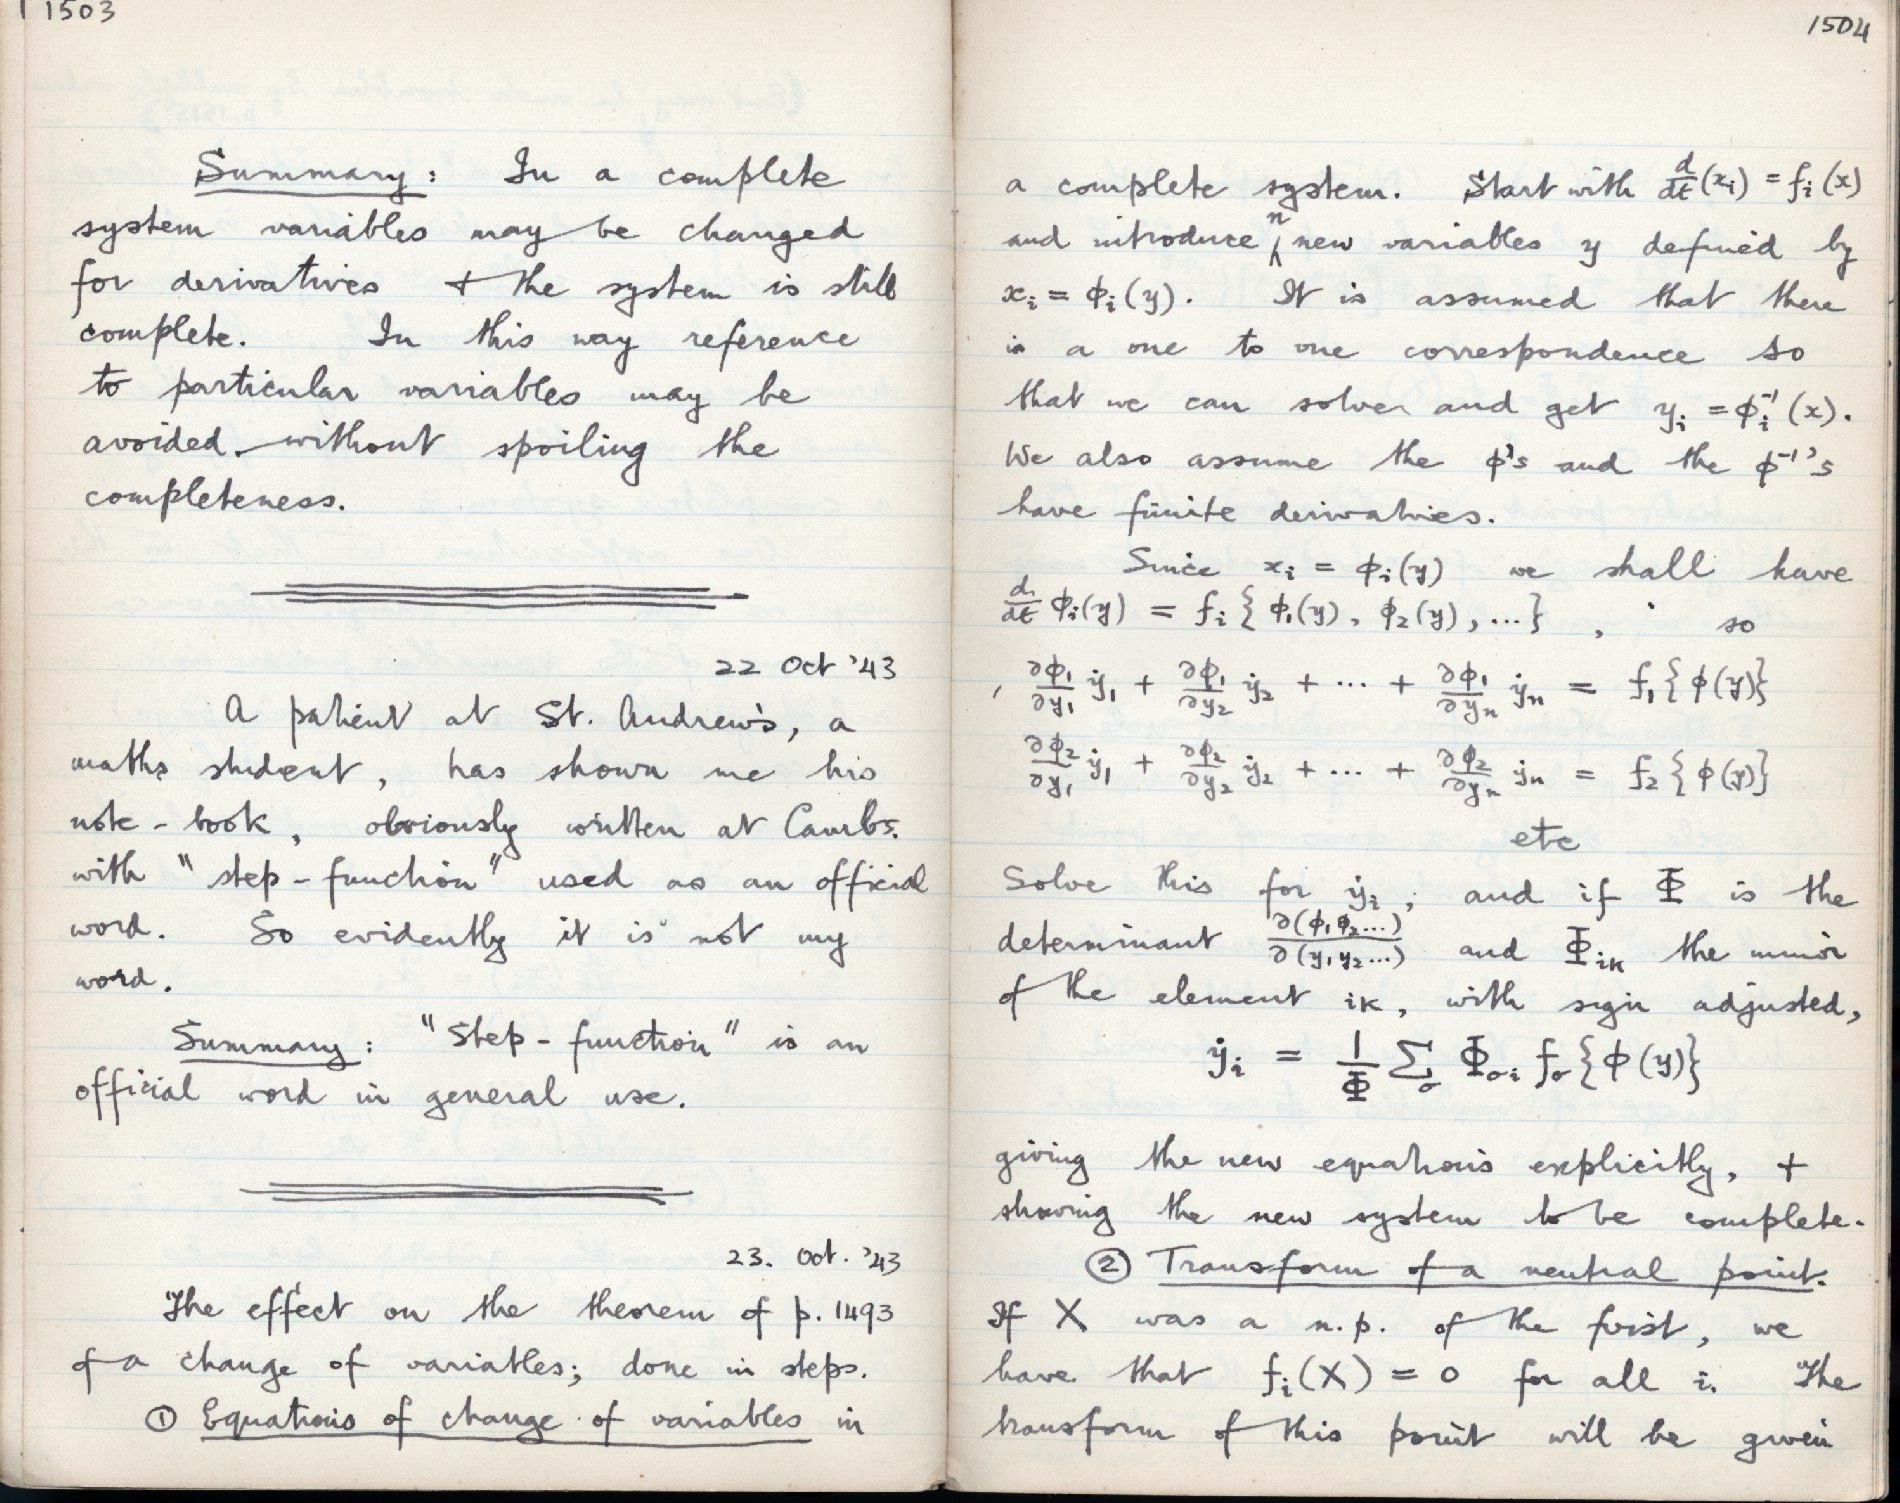 1503
Summary: In a complete
system variables may be changed
for derivatives + the system is still
complete. In this way reference
to particular variables may be
avoided without spoiling the
completeness.
22 Oct '43
A patient at St. Andrew's, a
maths student, has shown me his
note-book, obviously written at Cambs.
with "step-function" used as an official
word. So evidently it is not my
word.
Summary: "Step-function" is an
official word in general use.
23. Oct. '43
The effect on the theorem of p. 1493
of a change of variables; done in steps.
① Equations of change of variables in
1504
a complete system. Start with d/dt(xᵢ) = fᵢ(x)
and introduce n new variables y defined by
xᵢ = ϕᵢ(y). It is assumed that there
is a one to one correspondence so
that we can solve and get yᵢ = ϕᵢ⁻¹(x).
We also assume the ϕ's and the ϕ⁻¹'s
have finite derivatives.
Since xᵢ = ϕᵢ(y) we shall have
d/dt ϕᵢ(y) = fᵢ{ϕ₁(y), ϕ₂(y), ...}, so
∂ϕ₁/∂y₁ ẏ₁ + ∂ϕ₁/∂y₂ ẏ₂ + ... + ∂ϕ₁/∂yₙ ẏₙ = f₁{ϕ(y)}
∂ϕ₂/∂y₁ ẏ₁ + ∂ϕ₂/∂y₂ ẏ₂ + ... + ∂ϕ₂/∂yₙ ẏₙ = f₂{ϕ(y)}
etc
Solve this for ẏᵢ; and if Φ is the
determinant ∂(ϕ₁ϕ₂...)/∂(y₁y₂...) and Φᵢₖ the minor
of the element ik, with sign adjusted,
ẏᵢ = 1/Φ Σ_σ Φ_σᵢ f_σ{ϕ(y)}
giving the new equations explicitly, +
showing the new system to be complete.
② Transform of a neutral point.
If X was a n.p. of the first, we
have that fᵢ(X) = 0 for all i. The
transform of this point will be given